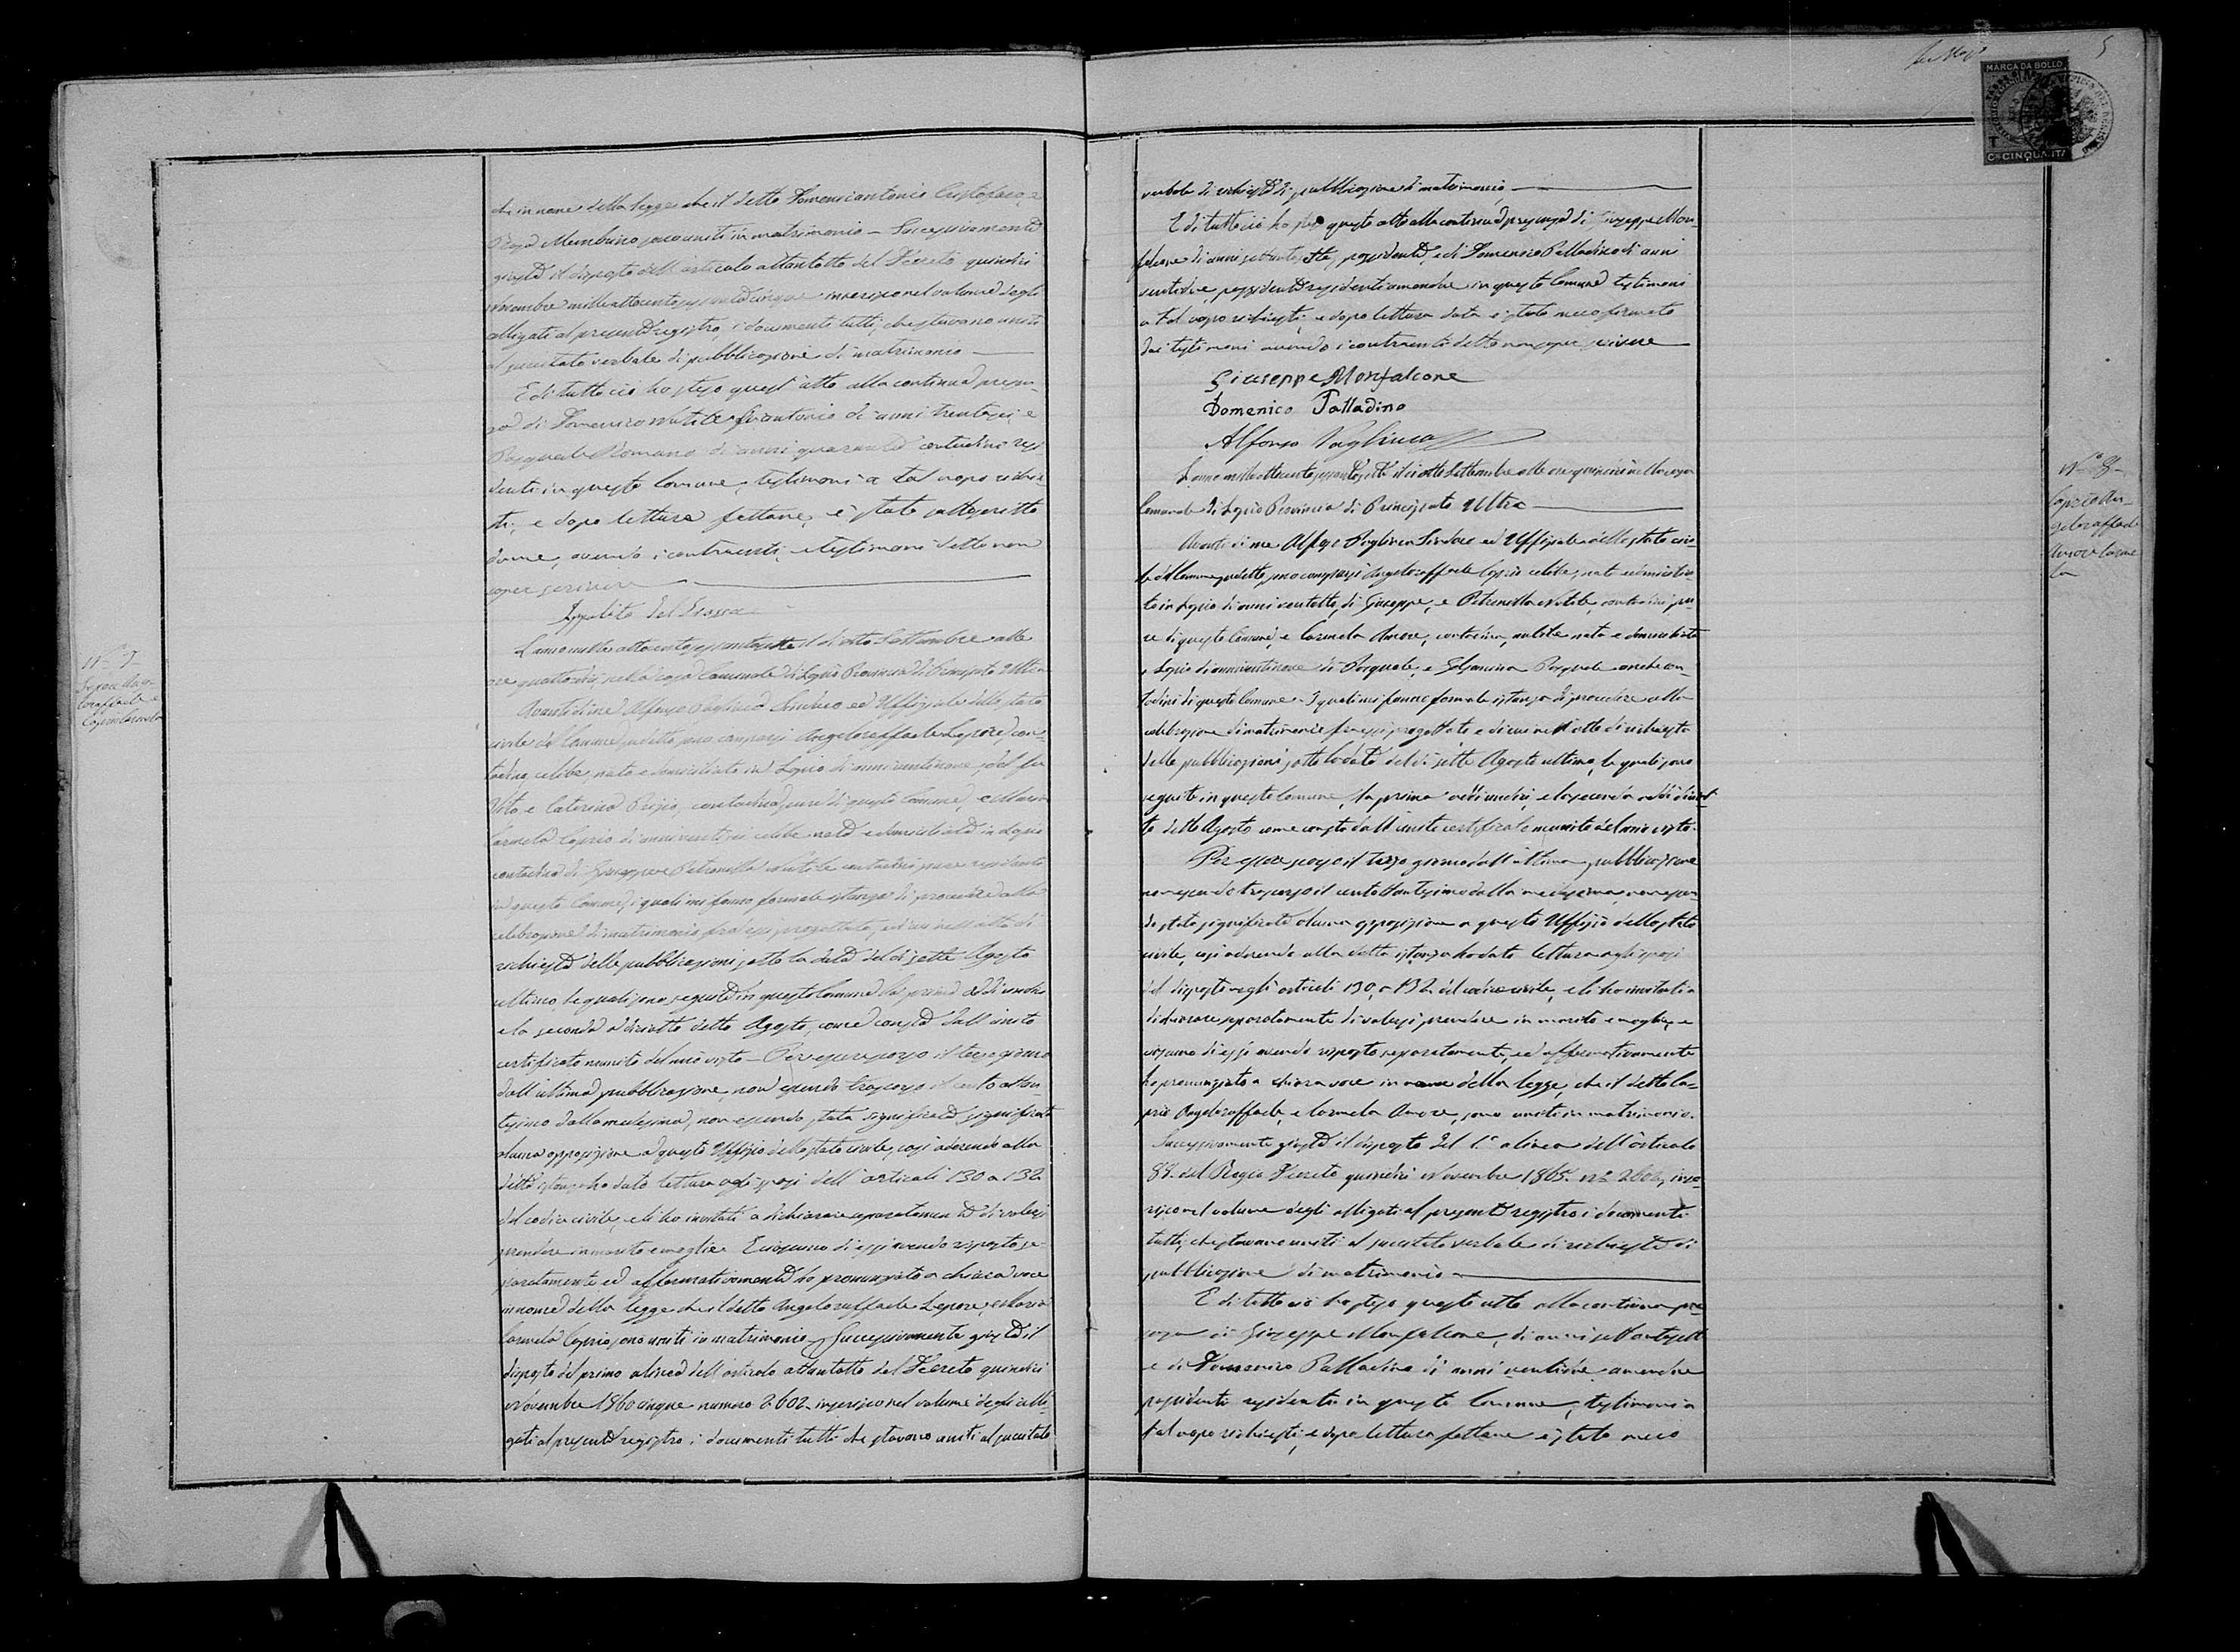 che in nome della legge che il detto Domenicantonio Cristofaro, e
Rosa Membrino sono uniti in matrimonio – Successivamente
giusta il disposto dell'articolo ottantotto del Decreto quindici
Novembre mille ottocento sessantacinque inserisco nel volume degli
alligati al presente registro, i documenti tutti, che stavano uniti
al succitato verbale di pubblicazione di matrimonio
E di tutto ciò ho steso quest'atto alla continua presen-
za di Domenico Natile fu Antonio di anni trentasei, e
Pasquale Romano di anni quaranta contadini resi
denti in questo Comune, testimoni a tal uopo richie-
sti, e dopo lettura fattane, è stato sottoscritto
da me, avendo i contraenti, e testimoni detto non
saper scrivere
Ippolito Del
N.° 7
Lepore Ange-
loraffaele e
Caprio Carmela
L'anno mille ottocento sessantasette il dì otto Settembre alle
ore quattordici, nella casa Comunale di Provincia di Principato Ultra
Avanti di me Alfonso Pagliuca Sindaco ed Uffiziale dello stato
civile del Comune suddetto, sono comparsi Angeloraffaele Lepore, con-
tadino, celibe, nato e domiciliato in di anni ventinove, del fu
Vito, e Caterina contadina pure di questo Comune, e Maria
Carmela Caprio di anni ventisei nubile nata e domiciliata in
contadina di Giuseppe e Petronilla Natile contadini pure residenti
in questo Comune, i quali mi fanno formale istanza di procedere alla
celebrazione di matrimonio fra essi progettato, e di cui nell'atto di
richiesta delle pubblicazioni sotto la data del dì sette Agosto
ultimo, le quali sono seguite in questo Comune la prima addì undici
e la seconda addì diciotto detto Agosto, come consta dall'unito
certificato munito del mio visto – Per essere scorso il terzo giorno
dall'ultima pubblicazione, non essendo trascorso il cento ottan-
tesimo dalla medesima, non essendo stata significata significata
alcuna opposizione a questo Uffizio dello stato civile, così aderendo alla
detta istanza ho dato lettura agli sposi dell'articoli 130 a 132
del codice civile, e li ho invitati a dichiarare separatamente di volersi
prendere in marito e moglie. E ciascuno di essi avendo risposto se-
paratamente ed affermativamente ho pronunziato a chiara voce
in nome della legge che il detto Angeloraffaele Lepore, e Maria
Carmela Caprio sono uniti in matrimonio – Successivamente giusta il
disposto del primo alinea dell'articolo ottantotto del Decreto quindici
Novembre 1860cinque numero 2602 inserisco nel volume degli alli-
gati al presente registro, i documenti tutti che stavano uniti al succitato
5
MARCA DA BOLLO
C.mi CINQUANTA
verbale di richiesta di pubblicazione di matrimonio
E di tutto ciò ho steso questo atto alla continua presenza di Giuseppe Mon-
falcone di anni settantasette possidente, e di Domenico Palladino di anni
ventidue, possidente residenti amendue in questo Comune testimoni
a tal uopo richiesti, e dopo lettura data è stato meco firmato
dai testimoni avendo i contraenti detto non saper scrivere
Giuseppe Monfalcone
Domenico Palladino
Alfonso Pagliuca
N.° 8
Caprio An-
geloraffaele
Amore Carme
la
L'anno mille ottocento sessantasette il dì otto Settembre alle ore quindici nella casa
Comunale di Provincia di Principato Ultra
Avanti di me Alfonso Pagliuca Sindaco ed Uffiziale dello stato civi-
le del Comune suddetto, sono comparsi Angeloraffaele Caprio celibe, nato e domicilia-
to in di anni ventotto, di Giuseppe, e Petronilla Natile, contadini pu-
re di questo Comune, e Carmela Amore, contadina, nubile nata e domiciliata
a di anni ventinove di Pasquale, e Pasquale anche con
tadini di questo Comune. I quali mi fanno formale istanza di procedere alla
celebrazione di matrimonio fra essi progettato e di cui nell'atto di richiesta
delle pubblicazioni sotto la data del dì sette Agosto ultimo, le quali sono
seguite in questo Comune, la prima addì undici, e la seconda addì diciot
to detto Agosto come consta dall'unito certificato munito del mio visto.
Per essere scorso il terzo giorno dall'ultima pubblicazione
non essendo trascorso il cento ottantesimo dalla medesima, non essen-
do stata significata alcuna opposizione a questo Uffizio dello stato
civile, così aderendo alla detta istanza ho dato lettura agli sposi
del disposto negli articoli 130, a 132 del codice civile, e li ho invitati a
dichiarare separatamente di volersi prendere in marito e moglie, e
ciascuno di essi avendo risposto separatamente, ed affermativamente
ho pronunziato a chiara voce in nome della legge, che il detto Ca-
prio Angeloraffaele, e Carmela Amore, sono uniti in matrimonio.
Successivamente giusta il disposto del 1.° alinea dell'articolo
88. del Regio Decreto quindici Novembre 1865. n.° 2602, inse-
risco nel volume degli alligati al presente registro i documenti
tutti, che stavano uniti al succitato verbale di richiesta di
pubblicazione di matrimonio
E di tutto ciò ho steso questo atto alla continua pre
senza di Giuseppe Monfalcone, di anni settantasette
e di Domenico Palladino di anni ventidue amendue
possidenti residenti in questo Comune, testimoni a
tal uopo richiesti, e dopo lettura fattane è stato meco